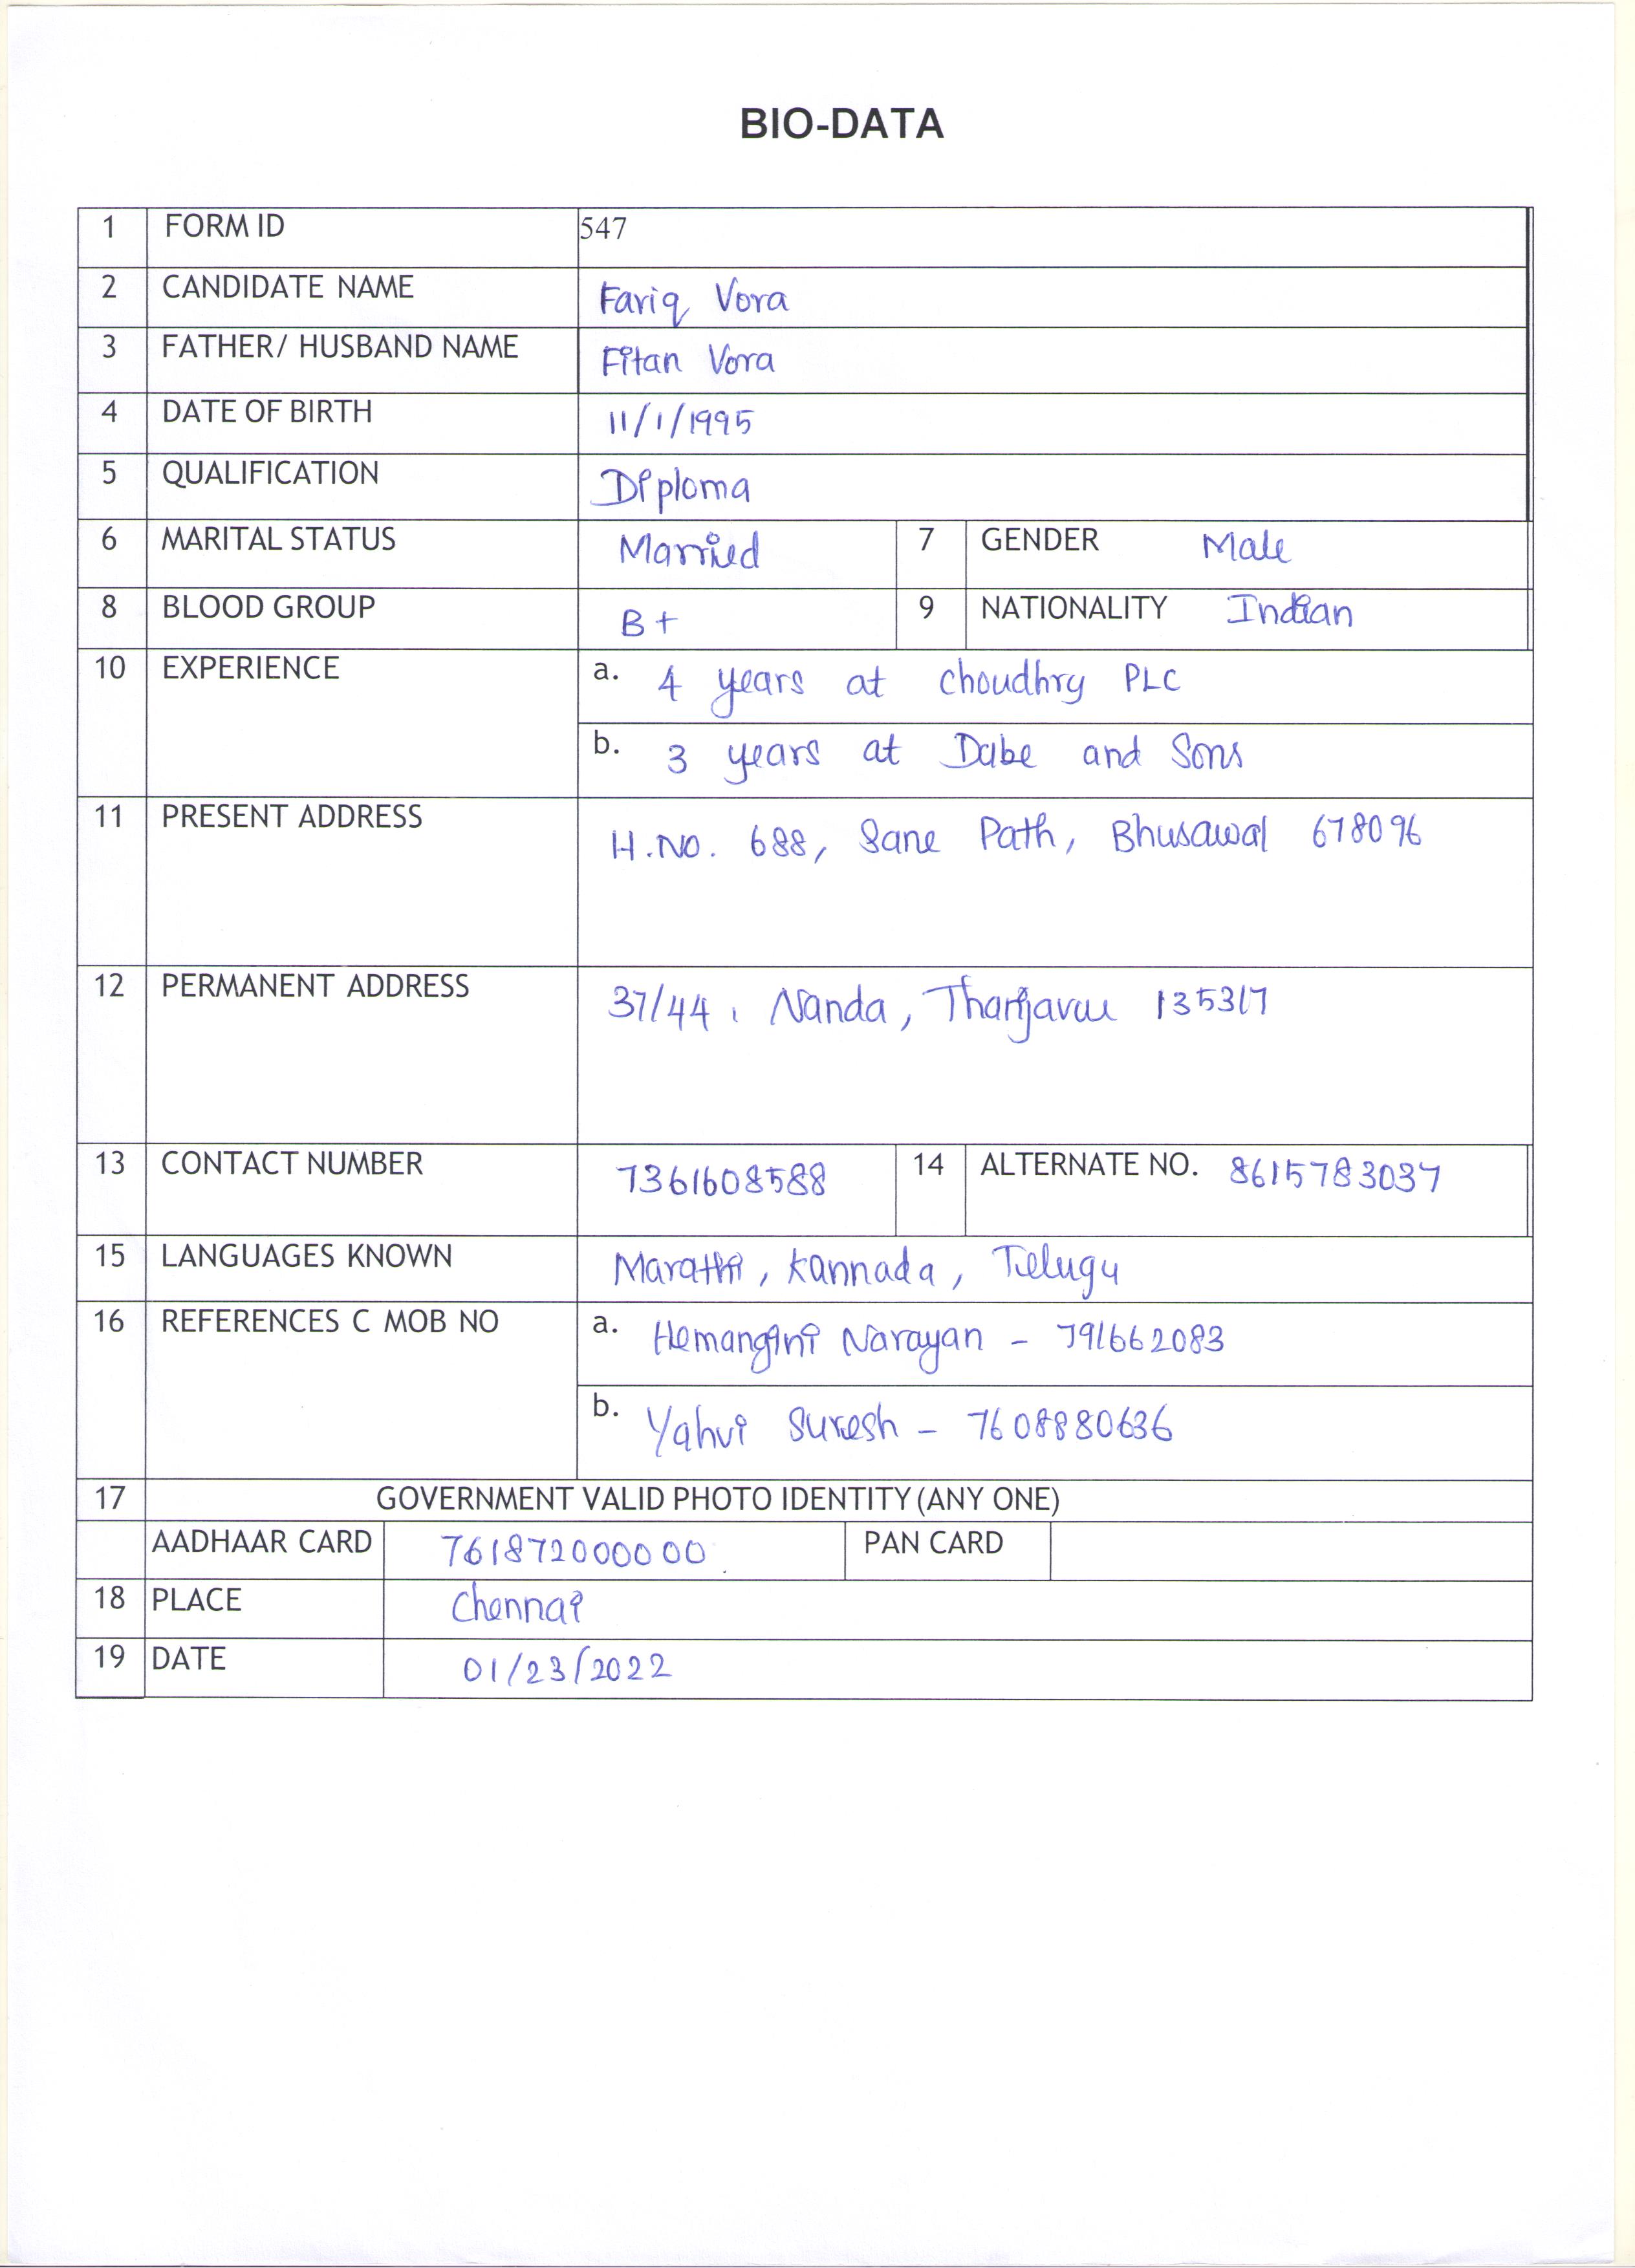 BIO-DATA
1 FORM ID 547
2 CANDIDATE NAME Fariq Vora
3 FATHER/ HUSBAND NAME Fitan Vora
4 DATE OF BIRTH 11/1/1995
5 QUALIFICATION Diploma
6 MARITAL STATUS Married 7 GENDER Male
8 BLOOD GROUP B+ 9 NATIONALITY Indian
10 EXPERIENCE a. 4 years at choudhry PLC
b. 3 years at Dube and Sons
11 PRESENT ADDRESS H.NO. 688, Sane Path, Bhusawal 678096
12 PERMANENT ADDRESS 37/44, Nanda, Thanjavur 135317
13 CONTACT NUMBER 7361608588 14 ALTERNATE NO. 8615783037
15 LANGUAGES KNOWN Marathi, Kannada, Telugu
16 REFERENCES C MOB NO a. Hemangini Narayan - 791662083
b. Yahvi Suresh - 7608880636
17 GOVERNMENT VALID PHOTO IDENTITY (ANY ONE)
AADHAAR CARD 761872000000 PAN CARD
18 PLACE Chennai
19 DATE 01/23/2022